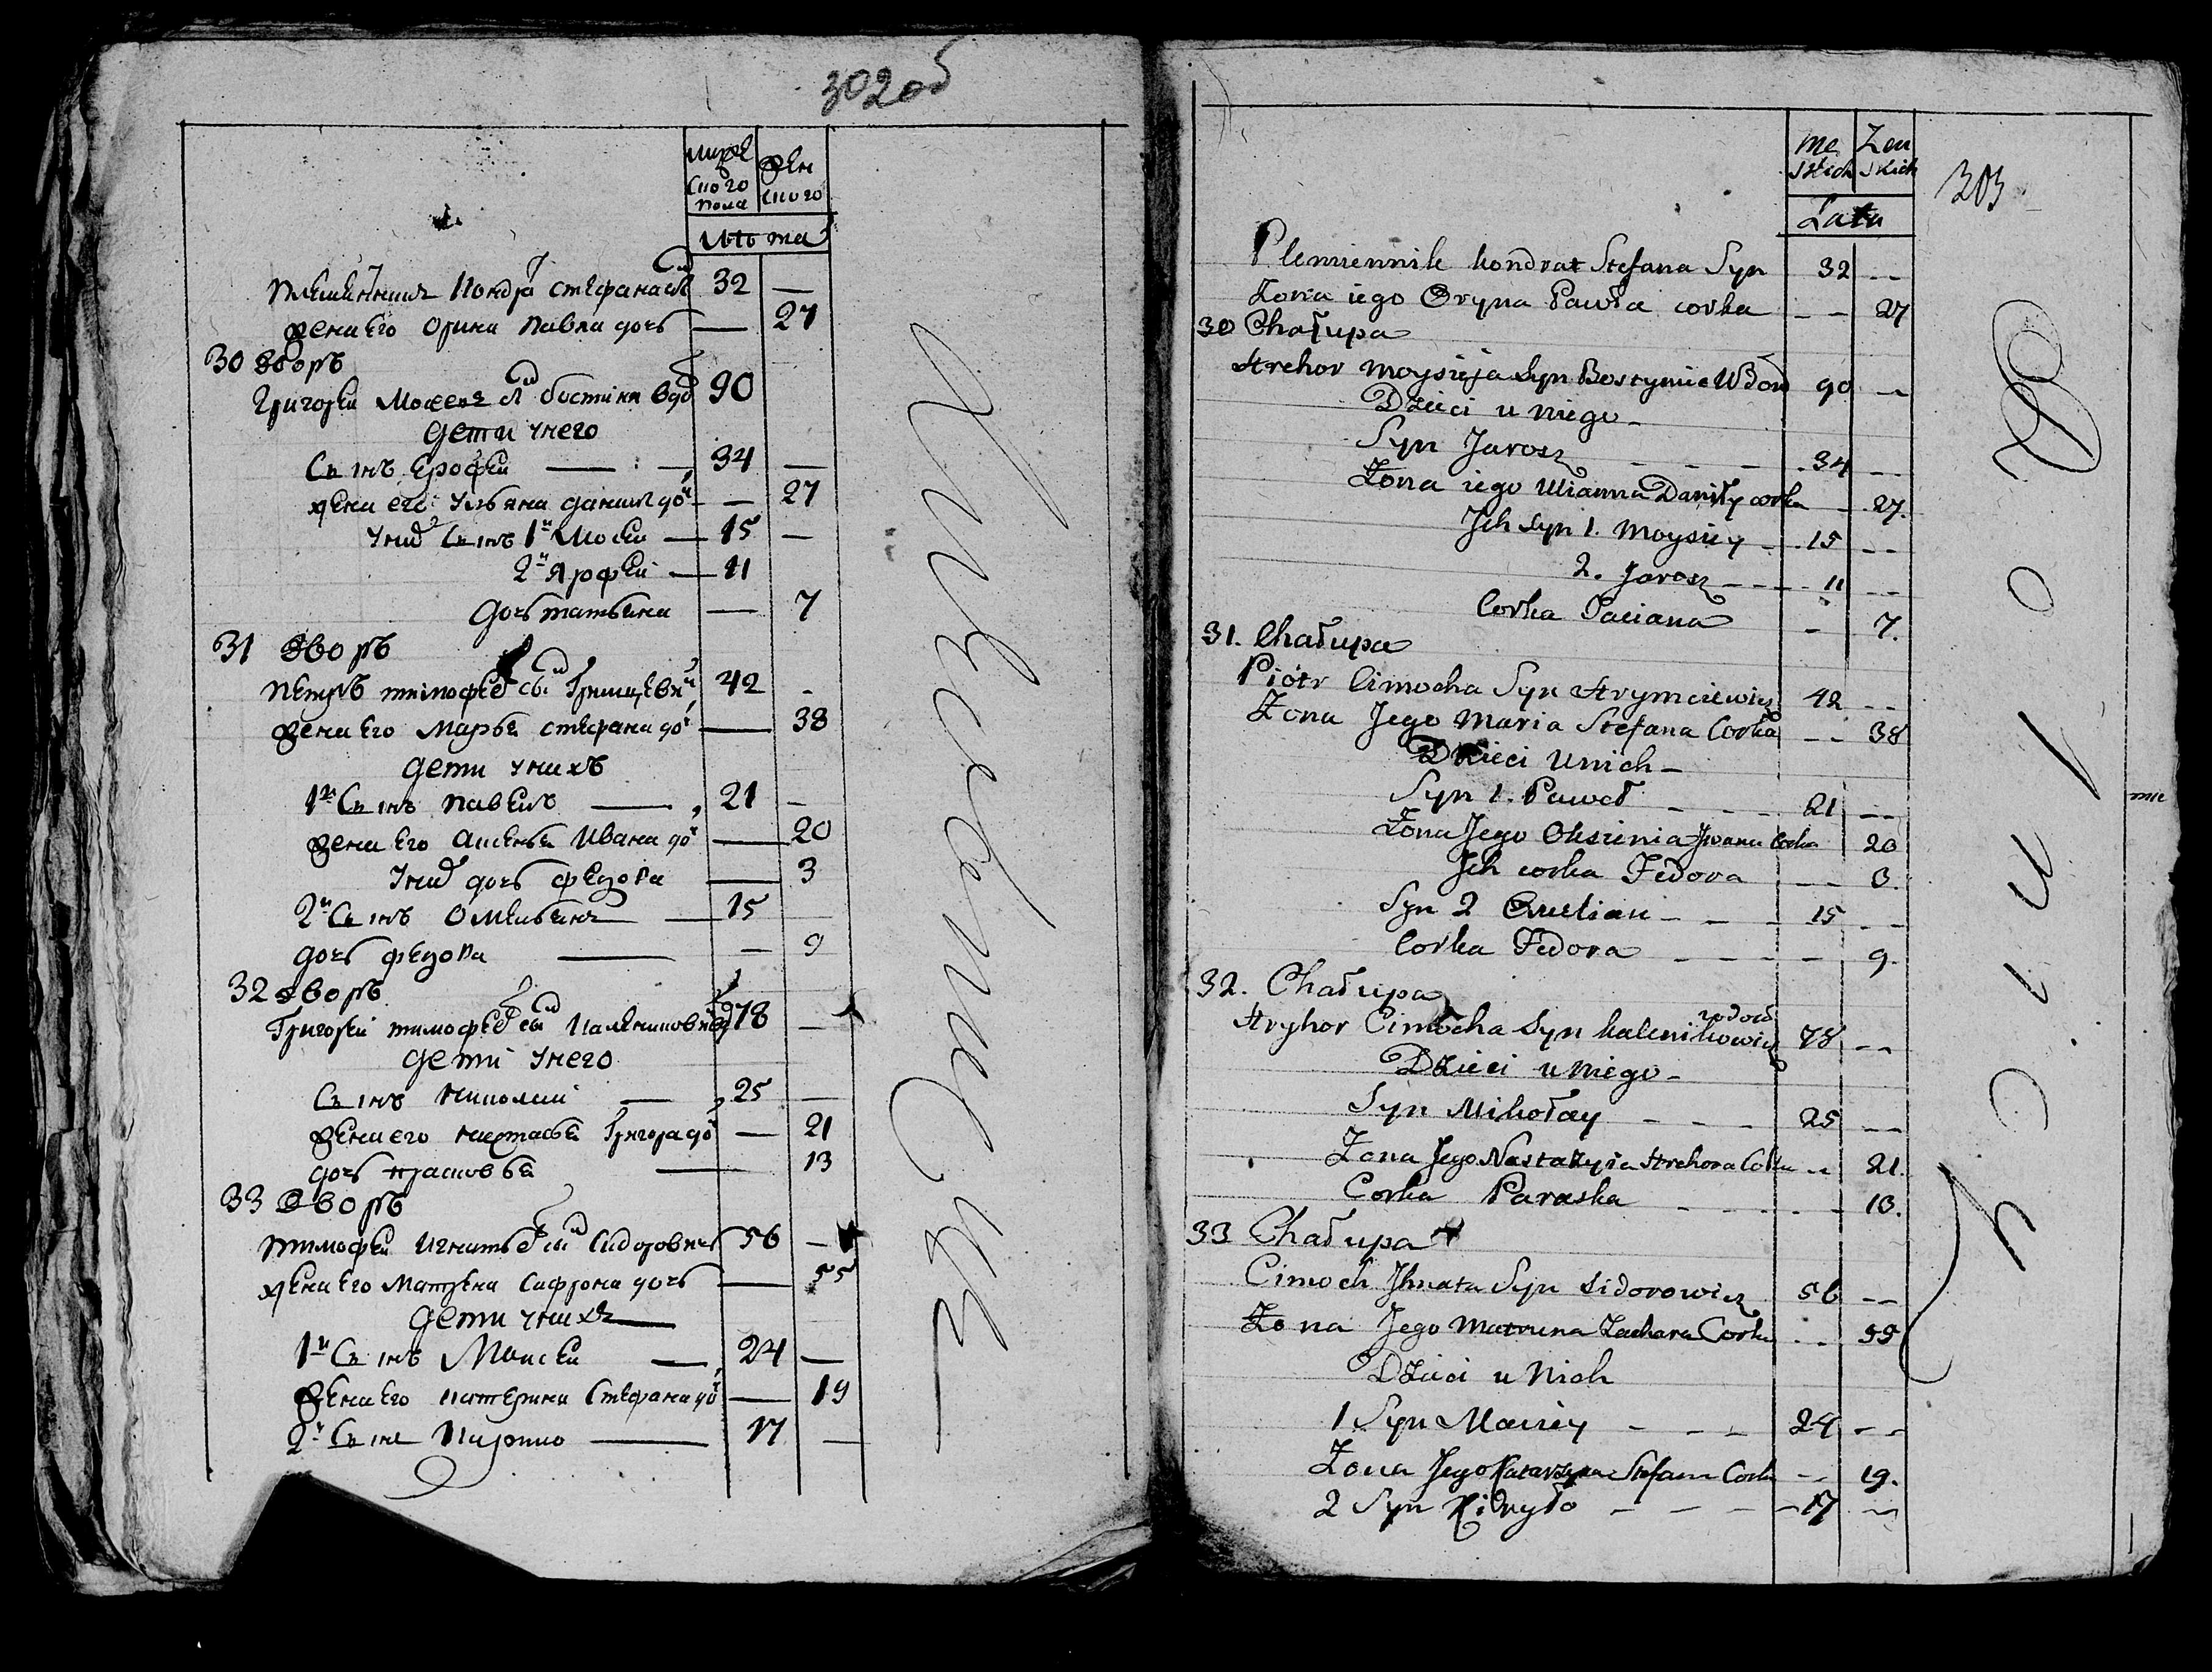 302 об
мужес
кого
пола
жен
ского
лѣта
племянникъ Кондра Стефана сы 32 —
жена его Орина Павла дочь — 27
30 дворъ
Григорей Мосея сы вдо 90
дети у него
Сынъ Ерофей — 34 —
жена его Ульяна Данила до — 27
у них Сынъ 1й Мосей — 15 —
2й Ярофей — 11
дочь Татьяна — 7
31 дворъ
Петръ Тимофее сы Гримцеви 42 -
жена его Марья Стефана до — 38
дети у нихъ
1й Сынъ Павелъ — 21 —
жена его Аксенья Ивана до — 20
у них дочь Федора — 3
2й Сынъ Омельянъ — 15
дочь Федора — — 9
32 дворъ
Григорей Тимофее сы Каленикови вд 78 —
дети у него
Сынъ Николай — 25 —
жена его Настасья Григора до — 21
дочь Прасковья — 13
33 дворъ
Тимофей Игнатье сы Сидорович 56 —
жена его Матрена Сафрона дочь — 55
дети у нихъ
1й Сынъ Мойсей — 24 —
жена его Катерина Стефана до — 19
2й Сынъ Кирило — 17 —
303
Me
skich
Zen
skich
Lata
Plemiennik Kondrat Stefana Syn 32 --
Zona iego Oryna Pawła corka -- 27
30 Chałupa
Hrehor Moysieja Syn Wdow 90 --
Dzieci u niego -
Syn Jarosz - - - 34 --
Zona iego Ulianna Daniły corka - 27.
Jch Syn 1. Moysiey - 15 --
2. Jarosz - - - 11 --
Corka Taciana - 7.
31. Chałupa
Piotr Cimocha Syn Hrymciewicz 42 --
Zona Jego Maria Stefana Corka -- 38
Dzieci u nich -
Syn 1. Paweł - - - 21 --
Zona Jego Oksienia Jwana Corka 20
Jch corka Fedora -- 3.
Syn 2 - - 15 --
Corka Fedora - - - - 9.
32. Chałupa
wdow
Hryhor Cimocha Syn Kalenikowicz 78 --
Dzieci u niego -
Syn Mikołay - - - 25 --
Zona Jego Nastazyia Hrehora Corka -- 21.
Corka Paraska - - - - - 13.
33 Chałupa
Cimoch Jhnata Syn Sidorowicz 56 --
Zona Jego Matruna Zachara Corka -- 55
Dzieci u Nich
1 Syn Moisiey - - - 24 --
Zona Jego Katarzyna Stefana Corka -- 19.
2 Syn Kiryło - - - - 17 --